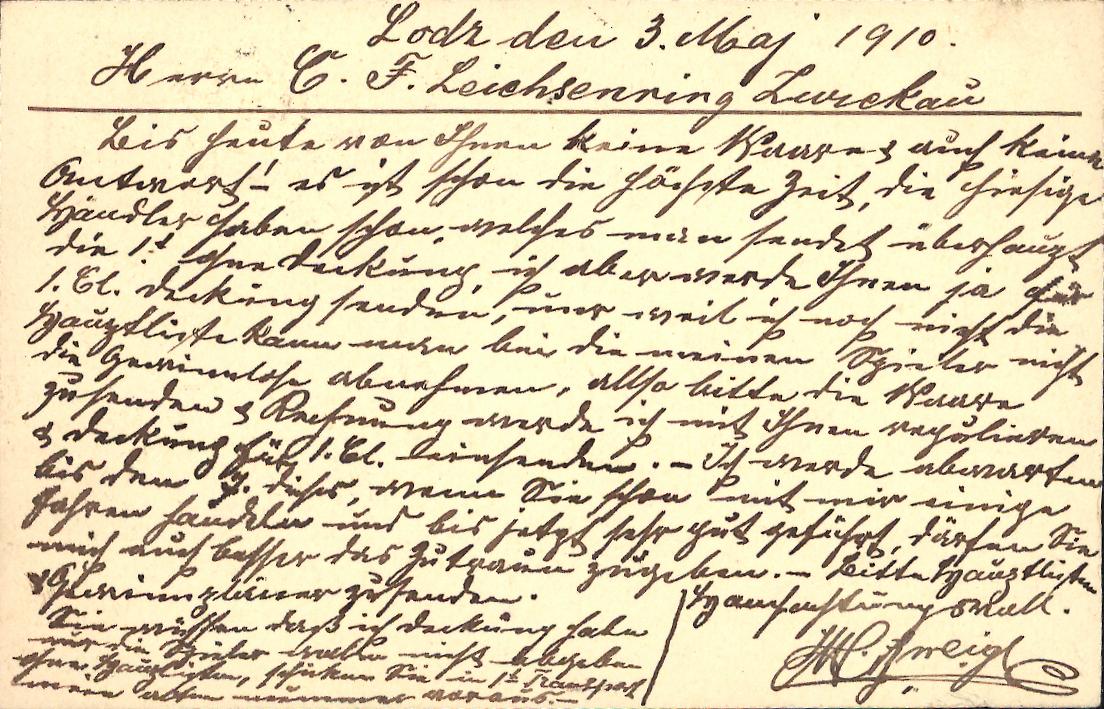 Lodz den 3. Maj 1910.
Herrn C. F. Leichsenring Zwickau
Bis heute von Ihnen keine Waare & auch keine
Antwort! – es ist schon die höchste Zeit, die hiesige
Händler haben schon, welches man sendet überhaupt
die 1t ohne Deckung, ich aber werde Ihnen ja für
1. Cl. Deckung senden, nur weil ich noch nicht die
Hauptliste kann man bei die meinen Spieler nicht
die Gewinnlose abnehmen, allso bitte die Waare
zusenden & Rechnung werde ich mit Ihnen regulieren
& Deckung für 1. Cl. einsenden. – Ich werde abwarten
bis dem dieses, wenn Sie schon mit mir einige
Jahren handeln und bis jetzt sehr gut geführt, dürfen Sie
mich auch besser das Zutrauen zugeben. – Bitte Hauptlisten
& Gewinnpläner zusenden.
Hochachtungsvoll.
Sie müssen daß ich Deckung habe
nur die Spieler wollen nicht abgeben
ohne Hauptlisten, schicken Sie in 1t Transport
mein alten nummer voraus. –